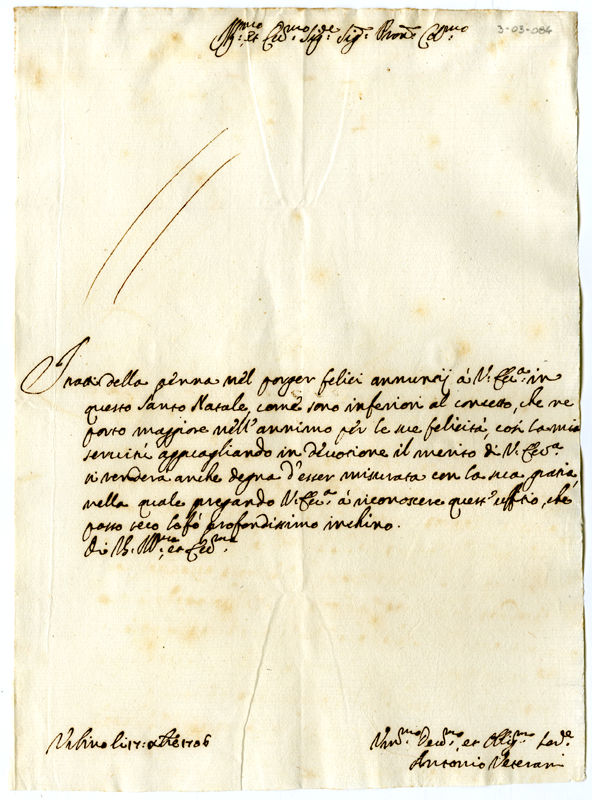 Ill.mo et Ecc.mo Sig.re Sig.r Pron.e Col.mo
3-03-084
I tratti della penna nel porger felici annuncij á V: Ecc.a in
questo Santo Natale, come sono inferiori al concetto, che ne
porto maggiore nell'annimo per le sue felicità, così la mia
servitù appagliando in devotione il merito di V: Ecc.a
si renderà anche degna d'esser misurata con la sua gratia,
nella quale pregando V: Ecc.a á riconoscere quest'uffitio, che
passo seco le fó profondissimo inchino.
Di V. Ill.ma et Ecc.ma
Urbino li 17: Xbre 1706
Um.mo Dev.mo, et Oblig.mo Ser.e
Antonio Veterani